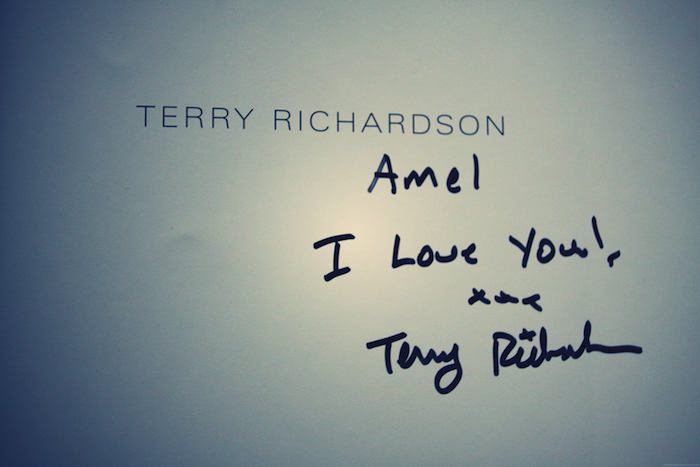 TERRY RICHARDSON
Amel
I Love You!,
xxx
Terry Richardson